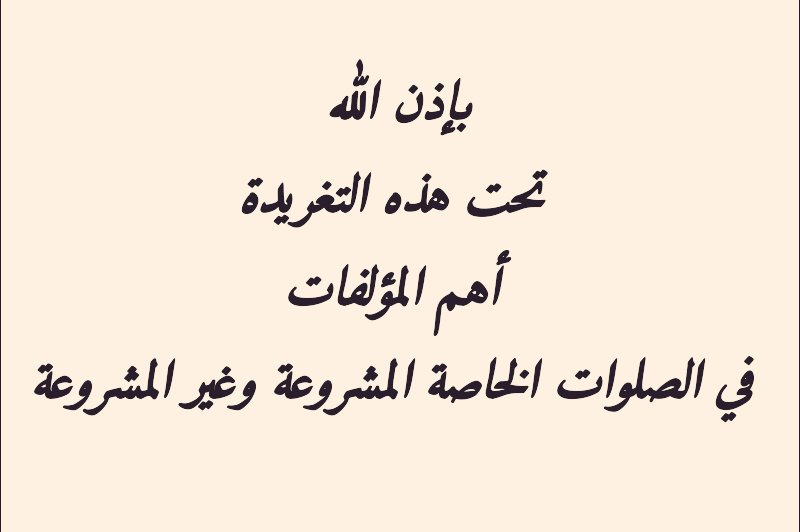 بإذن الله
تحت هذه التغريدة
أهم المؤلفات
في الصلوات الخاصة المشروعة وغير المشروعة